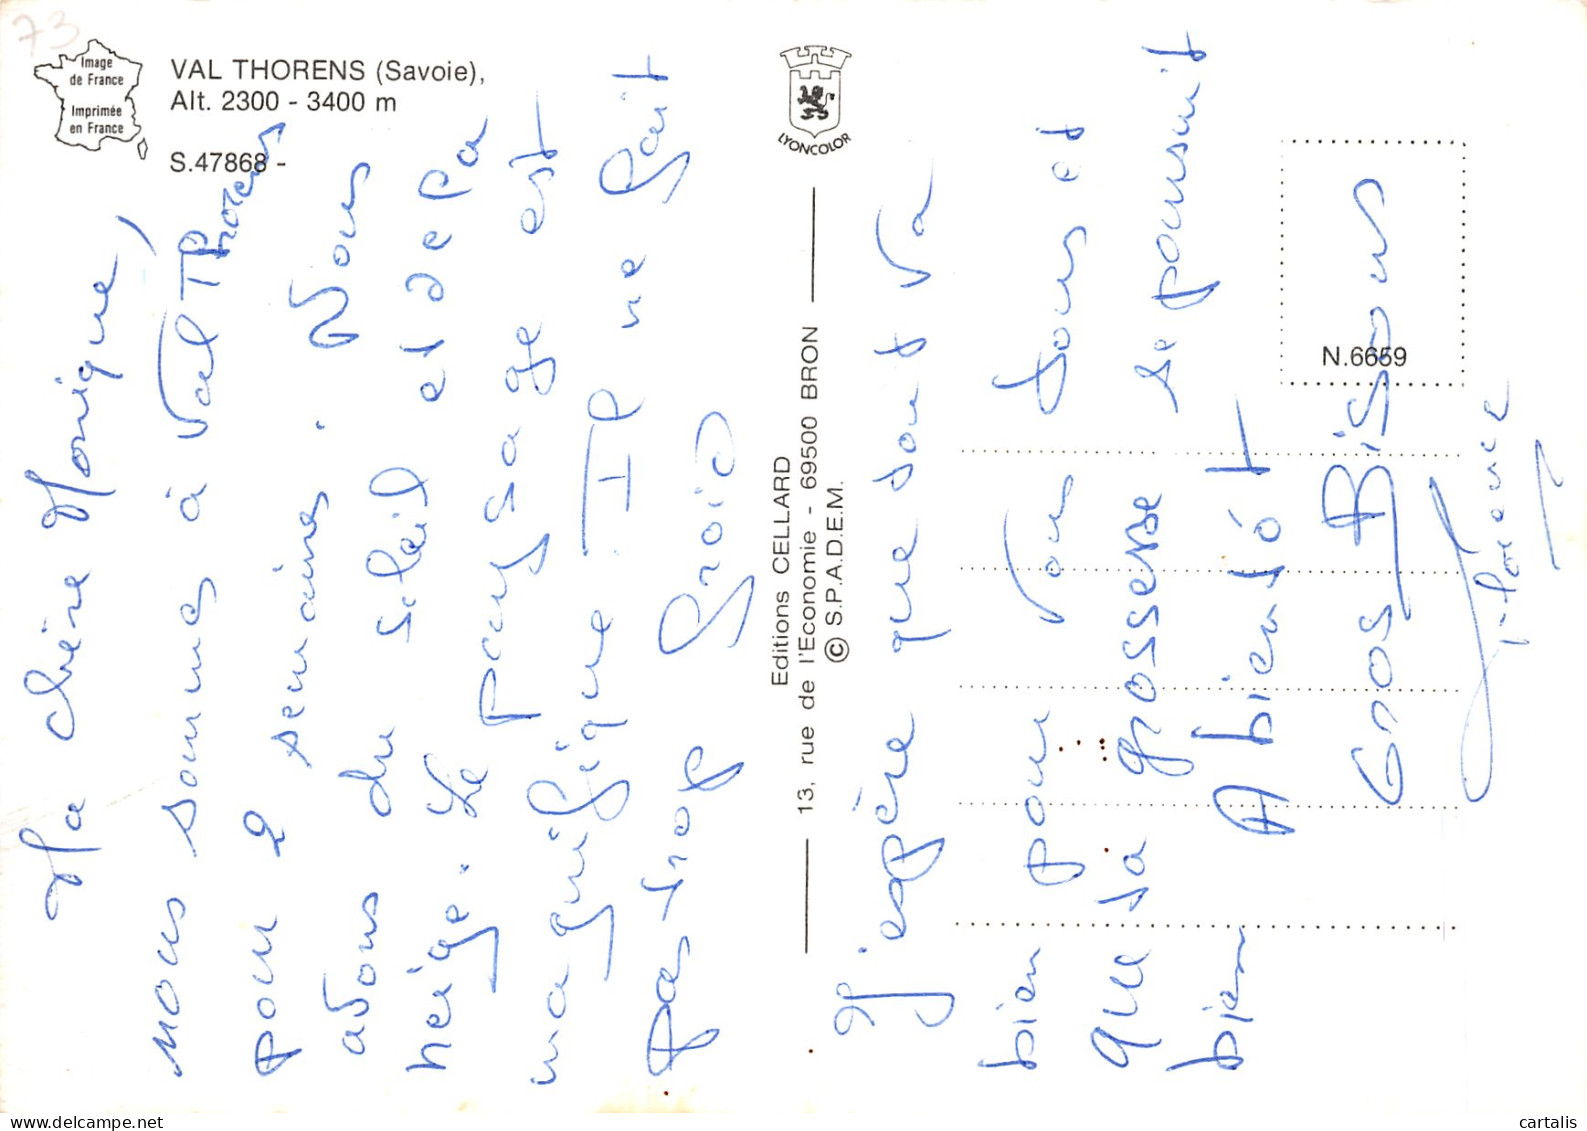 73
Image
de France
Imprimée
en France
VAL THORENS (Savoie),
Alt. 2300 - 3400 m
S.47868 -
LYONCOLOR
Editions CELLARD
13, rue de l'Economie - 69500 BRON
© S.P.A.D.E.M.
N.6659
Ma chère Monique,
nous sommes à Val Thorens
pour 2 semaines. Nous
avons du soleil et de la
neige. Le paysage est
magnifique Il ne fait
pas trop froid
J'espère que tout va
bien pour vous tous et
que ta grossesse se poursuit
bien A bientôt
Gros Bisous
Florence
cartalis